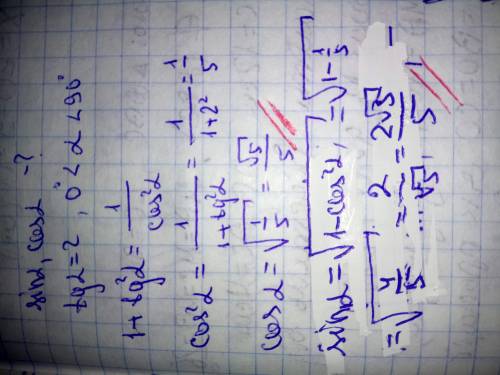 sinα, cosα - ?
tgα = 2, 0° < α < 90°
1 + tg²α = 1/cos²α
cos²α = 1/(1 + tg²α) = 1/(1 + 2²) = 1/5
cosα = √(1/5) = √5/5
sinα = √(1 - cos²α) = √(1 - 1/5) =
= √(4/5) = 2/√5 = 2√5/5